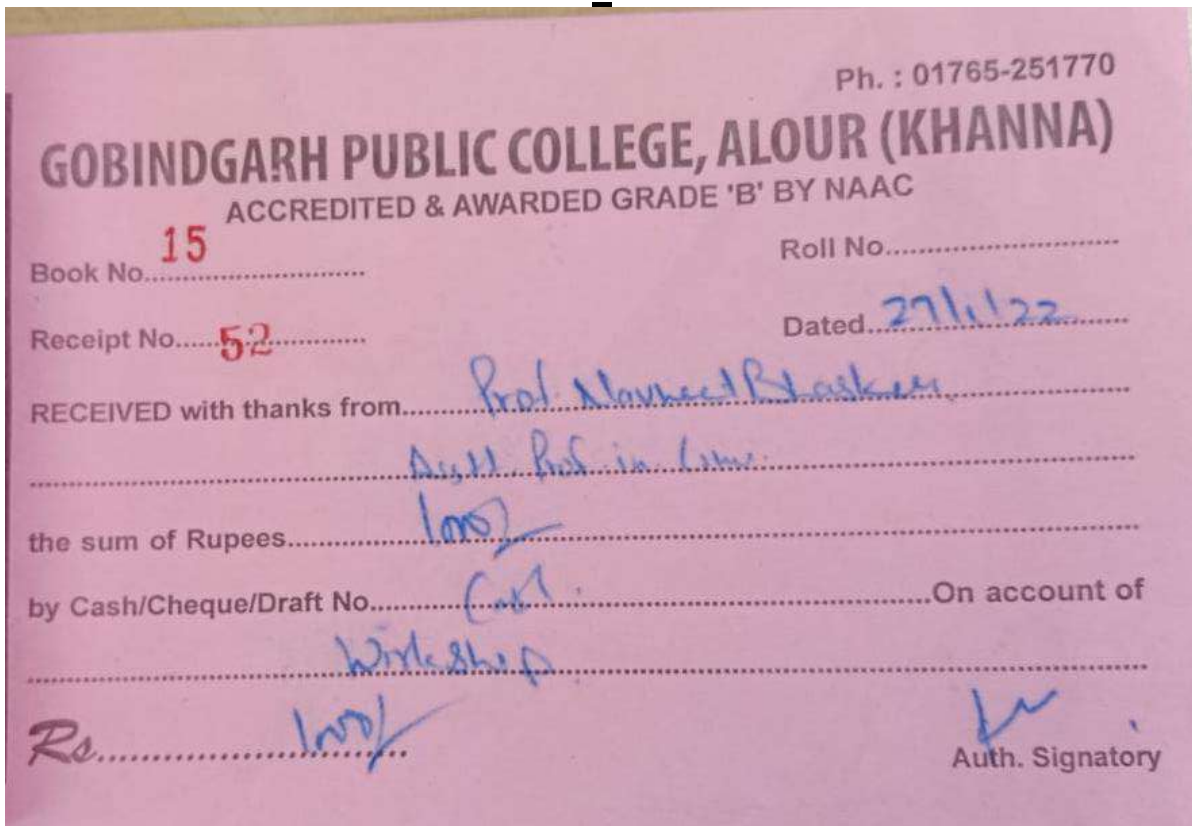 Ph. : 01765-251770
GOBINDGARH PUBLIC COLLEGE, ALOUR (KHANNA)
ACCREDITED & AWARDED GRADE 'B' BY NAAC
Book No. 15 Roll No.
Receipt No. 52 Dated
RECEIVED with thanks from Prof. Navneet Bhasker
Prof. in
the sum of Rupees 1000/-
by Cash/Cheque/Draft No. Cash. On account of
Workshop
Rs. 1000/-
Auth. Signatory